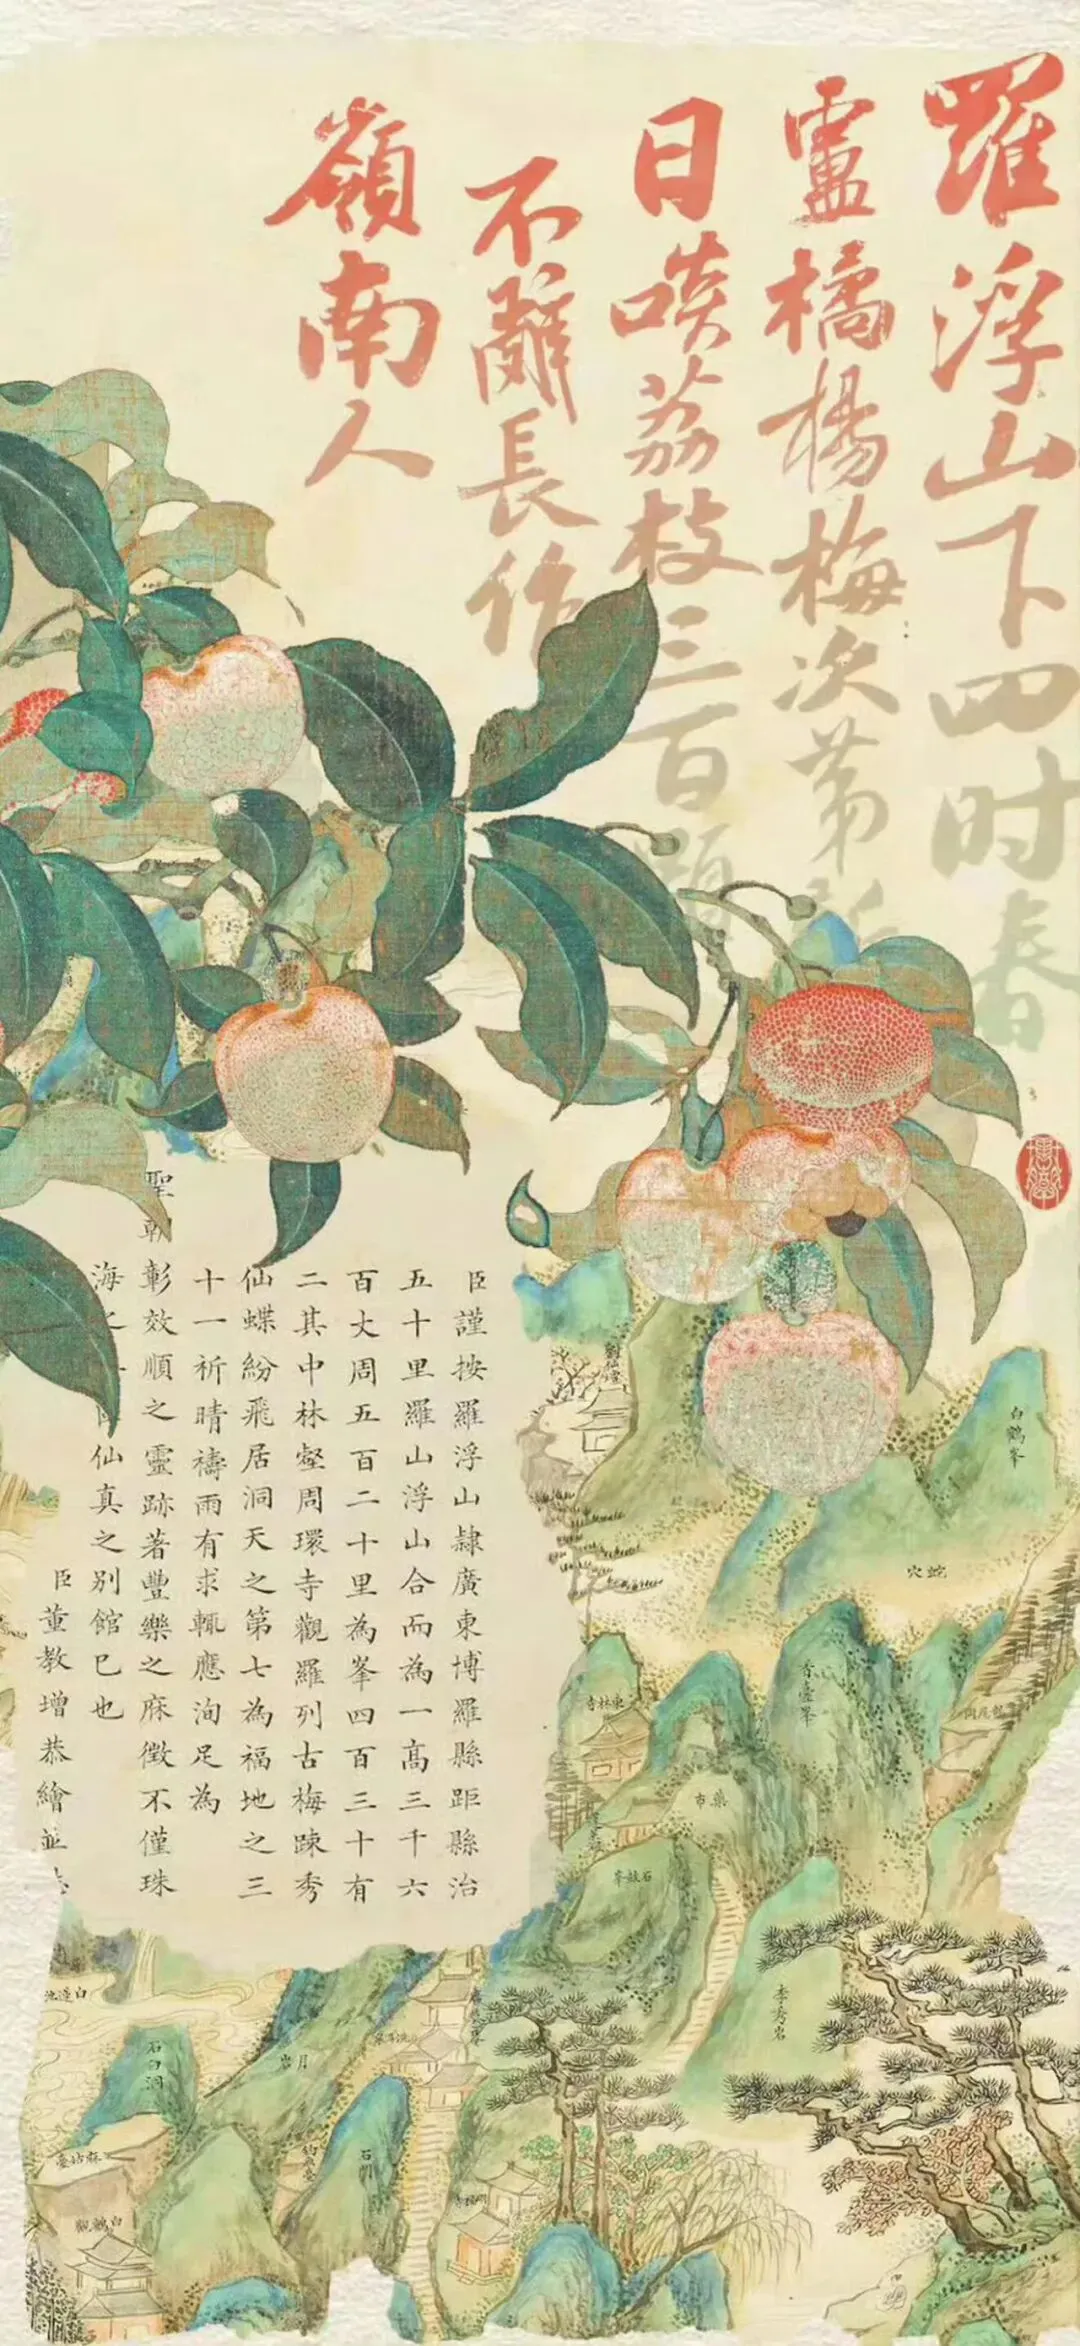 羅浮山下四时春
盧橘楊梅次第新
日啖荔枝三百顆
不辭長作
嶺南人
臣謹按羅浮山隸廣東博羅縣距縣治
五十里羅山浮山合而為一高三千六
百丈周五百二十里為峯四百三十有
二其中林壑周環寺觀羅列古梅踈秀
仙蝶紛飛居洞天之第七為福地之三
十一祈晴禱雨有求輒應洵足為
聖朝彰效順之靈跡著豐樂之庥徵不僅珠
海之
仙真之別館已也
臣董教增恭繪並
白鶴峯
蛇穴
香臺峯
東林寺
藥市
石鼓峯
李秀岩
白蓮池
石臼洞
月岩
麻姑臺
白鶴觀
釣魚臺
石洞